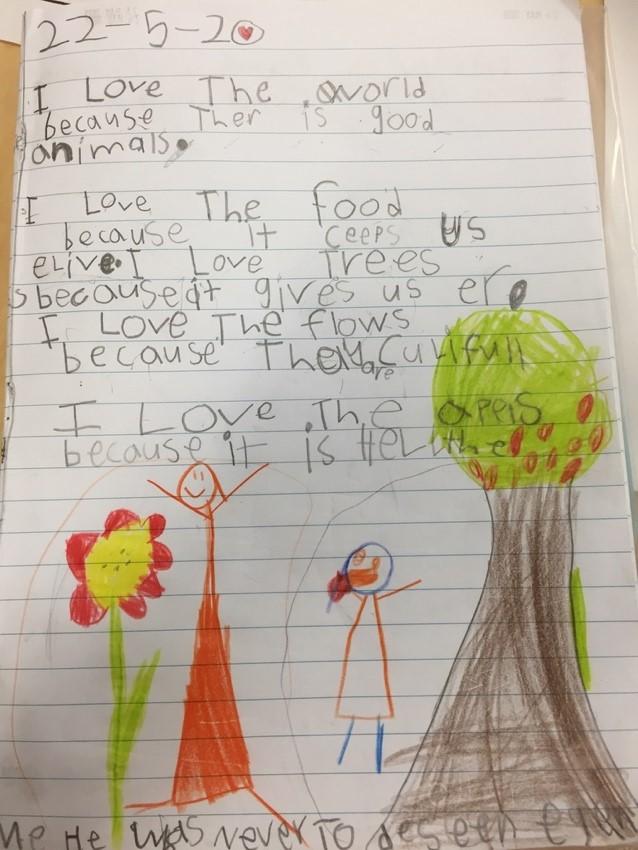 22-5-20
I Love The world
because Ther is good
animals.
I Love The food
because it ceeps us
elive. I Love Trees
because it gives us er.
I Love The flows
because They are Culifull
I Love The apels
because it is HeLthe
He was never To